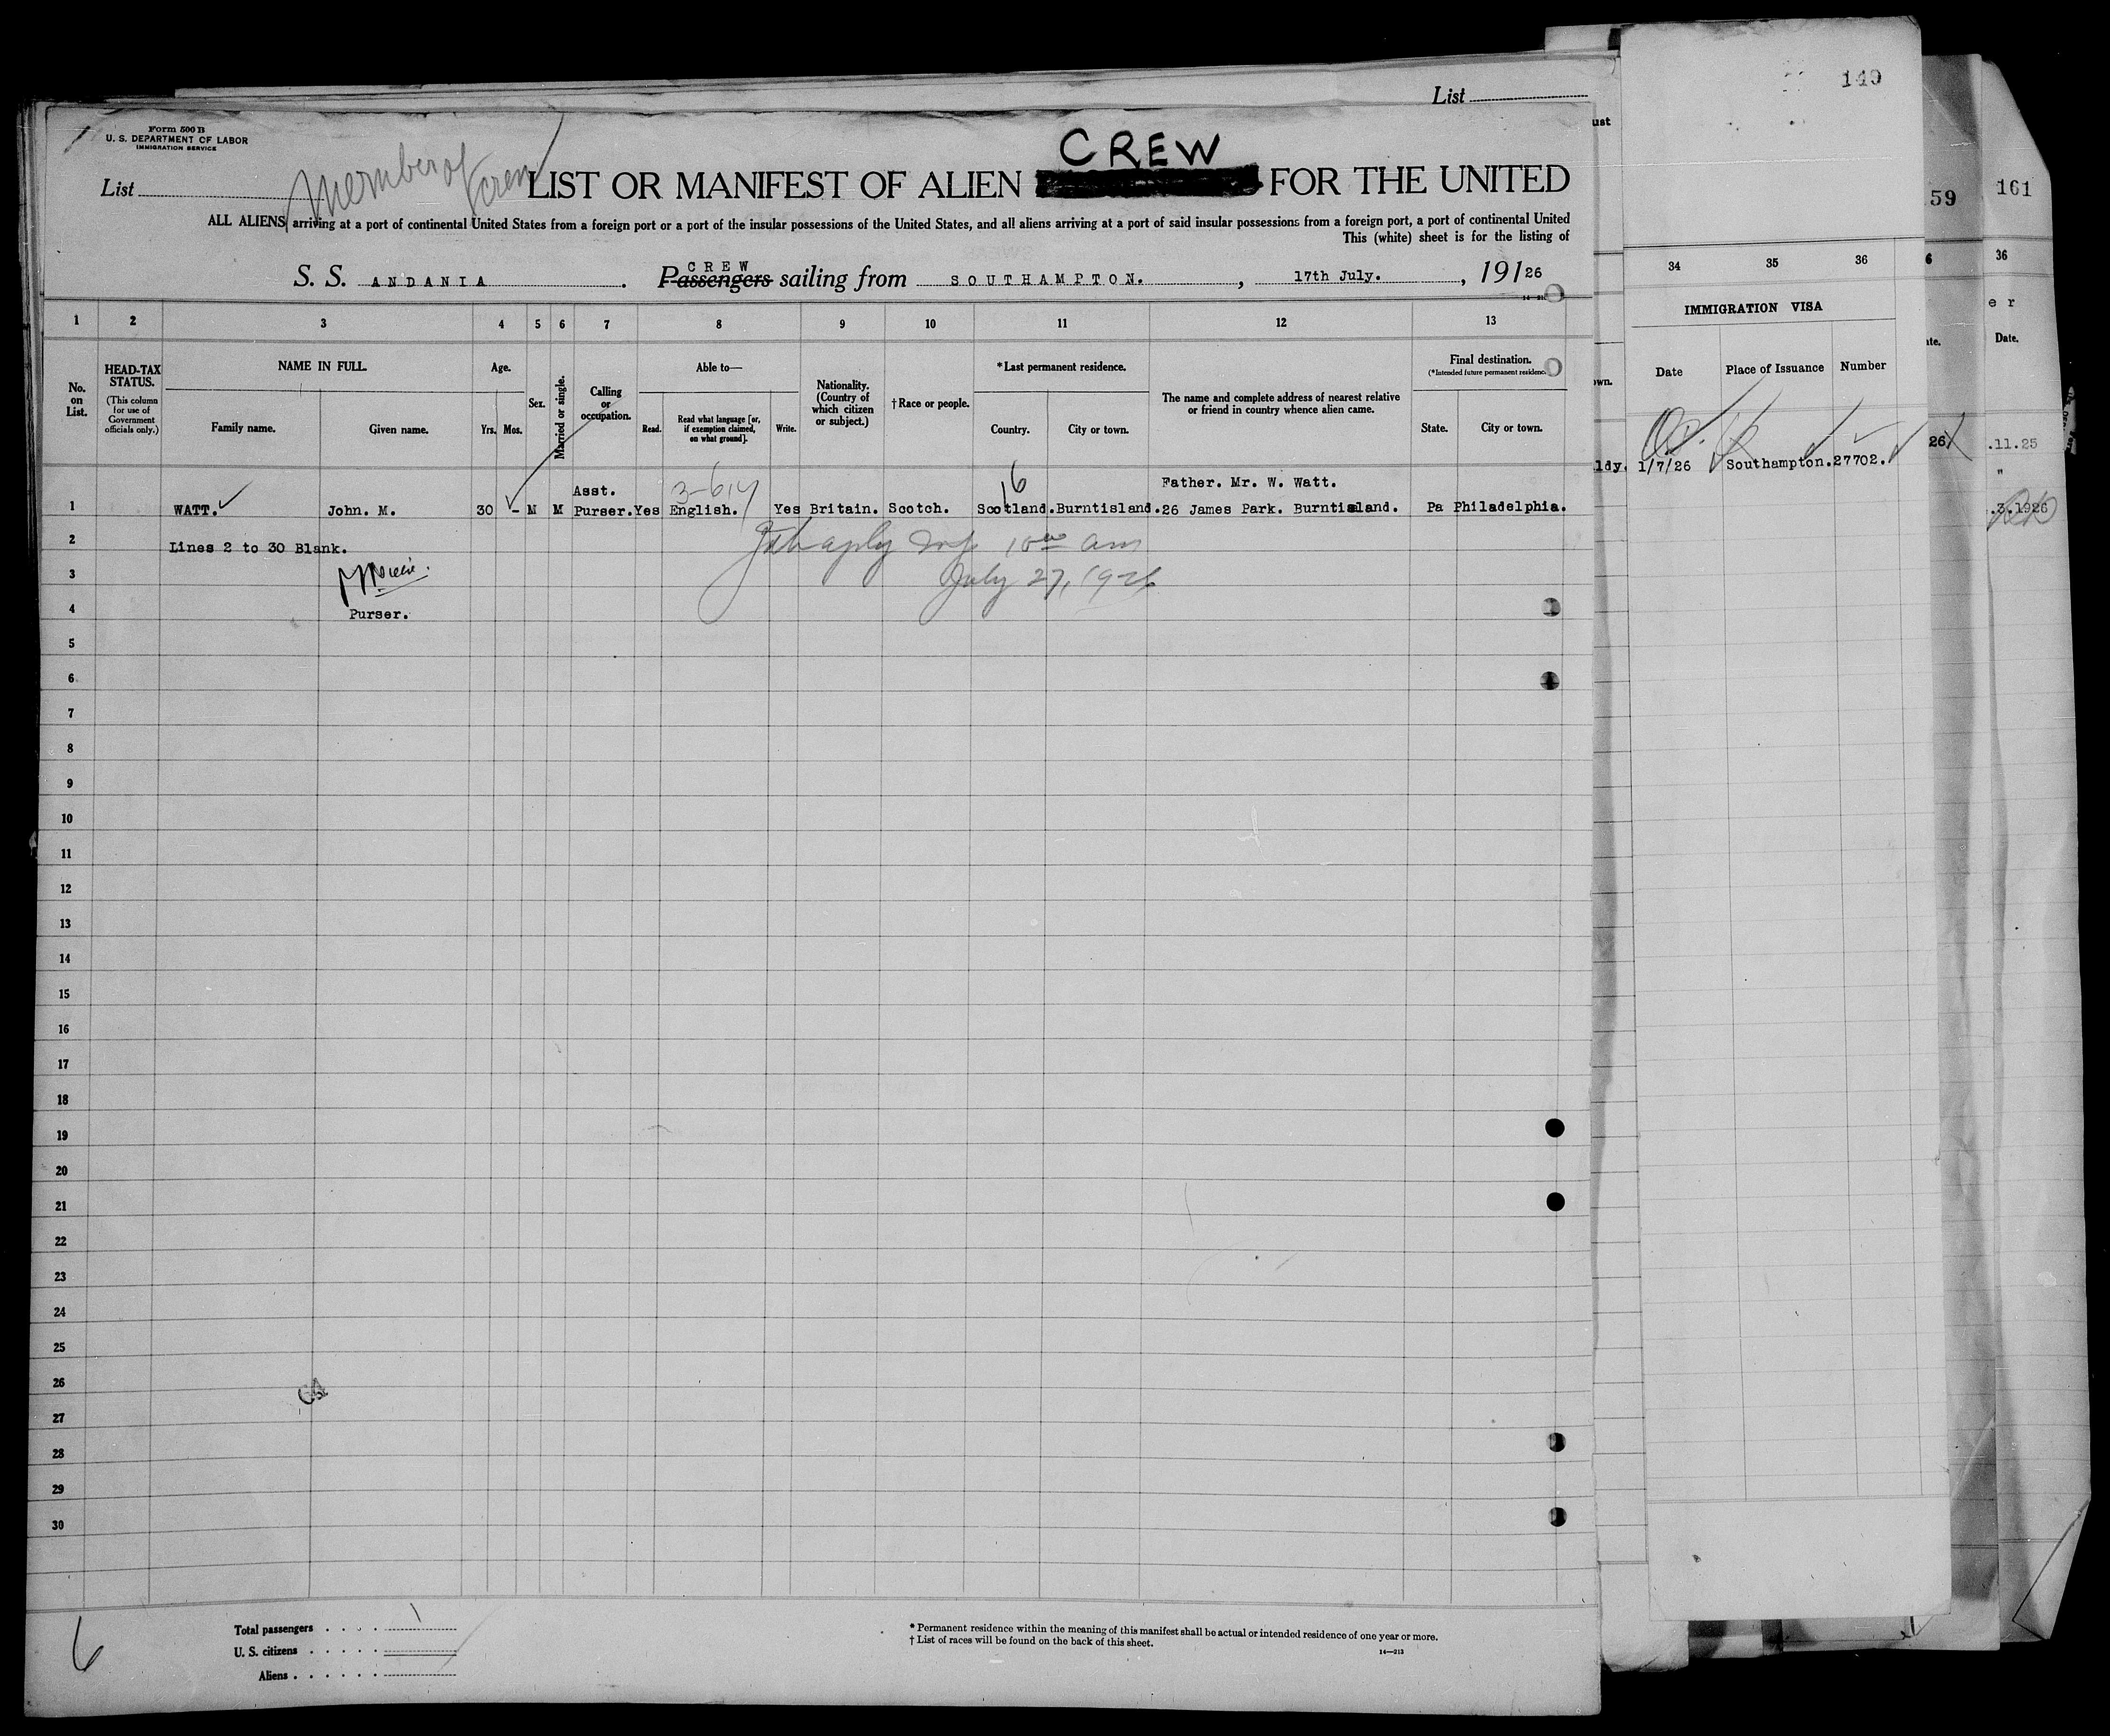 149
List
Form 500 B
U. S. DEPARTMENT OF LABOR
IMMIGRATION SERVICE
List
Member of crew
CREW
LIST OR MANIFEST OF ALIEN FOR THE UNITED
ALL ALIENS arriving at a port of continental United States from a foreign port or a port of the insular possessions of the United States, and all aliens arriving at a port of said insular possessions from a foreign port, a port of continental United
This (white) sheet is for the listing of
CREW
S. S. ANDANIA. Passengers sailing from SOUTHAMPTON., 17th July., 19126
1 2 3 4 5 6 7 8 9 10 11 12 13
No. on List.
HEAD-TAX STATUS.
(This column for use of Government officials only.)
NAME IN FULL.
Family name. Given name.
Age.
Yrs. Mos.
Sex.
Married or single.
Calling or occupation.
Able to—
Read. Read what language [or, if exemption claimed, on what ground]. Write.
Nationality. (Country of which citizen or subject.)
† Race or people.
*Last permanent residence.
Country. City or town.
The name and complete address of nearest relative or friend in country whence alien came.
Final destination.
(*Intended future permanent residence
State. City or town.
Asst. 3-614 16 Father. Mr. W. Watt.
1 WATT. John. M. 30 - M M Purser. Yes English. Yes Britain. Scotch. Scotland. Burntisland. 26 James Park. Burntisland. Pa Philadelphia.
2 Lines 2 to 30 Blank. 10 00 am
3 July 27, 1926
4 Purser.
5
6
7
8
9
10
11
12
13
14
15
16
17
18
19
20
21
22
23
24
25
26
27
28
29
30
6
Total passengers 1
U. S. citizens
Aliens
* Permanent residence within the meaning of this manifest shall be actual or intended residence of one year or more.
† List of races will be found on the back of this sheet.
14—213
ust
wn.
ldy.
34 35 36
IMMIGRATION VISA
Date Place of Issuance Number
1/7/26 Southampton. 27702.
59
6
ate.
26
161
36
e r
Date.
.11.25
"
.3.1926